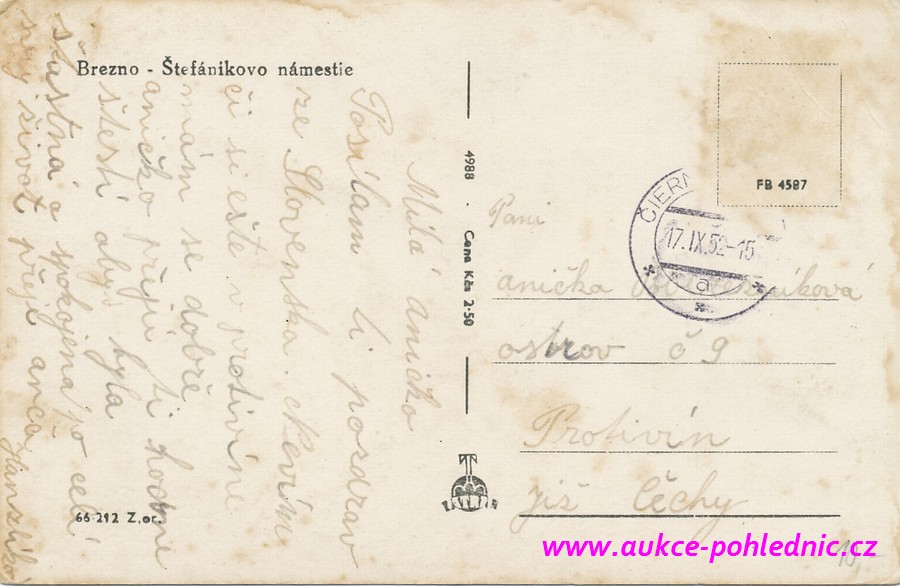 Brezno - Štefánikovo námestie
Milá aničko
Posílám ti pozdrav
ze Slovenska. nevím
či si ešte v protivíne
mám se dobře
aničko přeju ti hodně
štestí abys byla
šťastná a spokojená po celí
život přeje anča
66 212 Z.or.
4988 . Cena Kčs 2·50
TATRAN
FB 4597
ČIERN
17.IX.52-15
a
Pani
anička
ostrov č 9
Protivín
již Čechy
10,-
www.aukce-pohlednic.cz